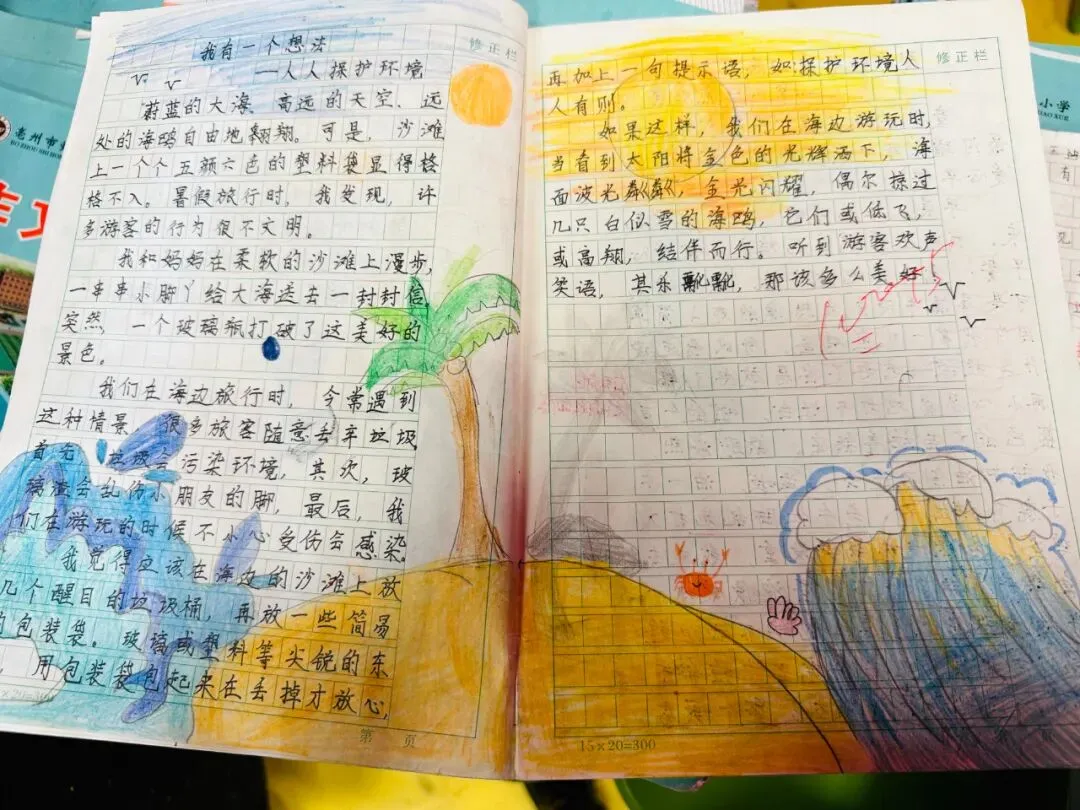 我有一个想法
——人人探护环境
蔚蓝的大海、高远的天空、远
处的海鸥自由地翱翔。可是，沙滩
上一个个五颜六色的塑料袋显得格
格不入。暑假旅行时，我发现，许
多游客的行为很不文明。
我和妈妈在柔软的沙滩上漫步，
一串串小脚丫给大海送去一封封信
突然，一个玻璃瓶打破了这美好的
景色。
我们在海边旅行时，今常遇到
这种情景，很多旅客随意丢弃垃圾，
首先，垃圾会污染环境，其次，玻
璃渣会乱伤小朋友的脚，最后，我
们在游玩的时候不小心受伤会感染
我觉得应该在海边的沙滩上放
几个醒目的垃圾桶，再放一些简易
的包装袋。玻璃或塑料等尖锐的东
，用包装袋包起来在丢掉才放心，
×20=300
第 页
修正栏
再加上一句提示语，如：探护环境人
人有则。
如果这样，我们在海边游玩时，
当看到太阳将金色的光辉洒下，海
面波光粼粼，金光闪耀，偶尔掠过
几只白似雪的海鸥，它们或低飞，
或高翔，结伴而行。听到游客欢声
笑语，其乐飘飘，那该多么美好
修正栏
15×20=300
亳州市
小学